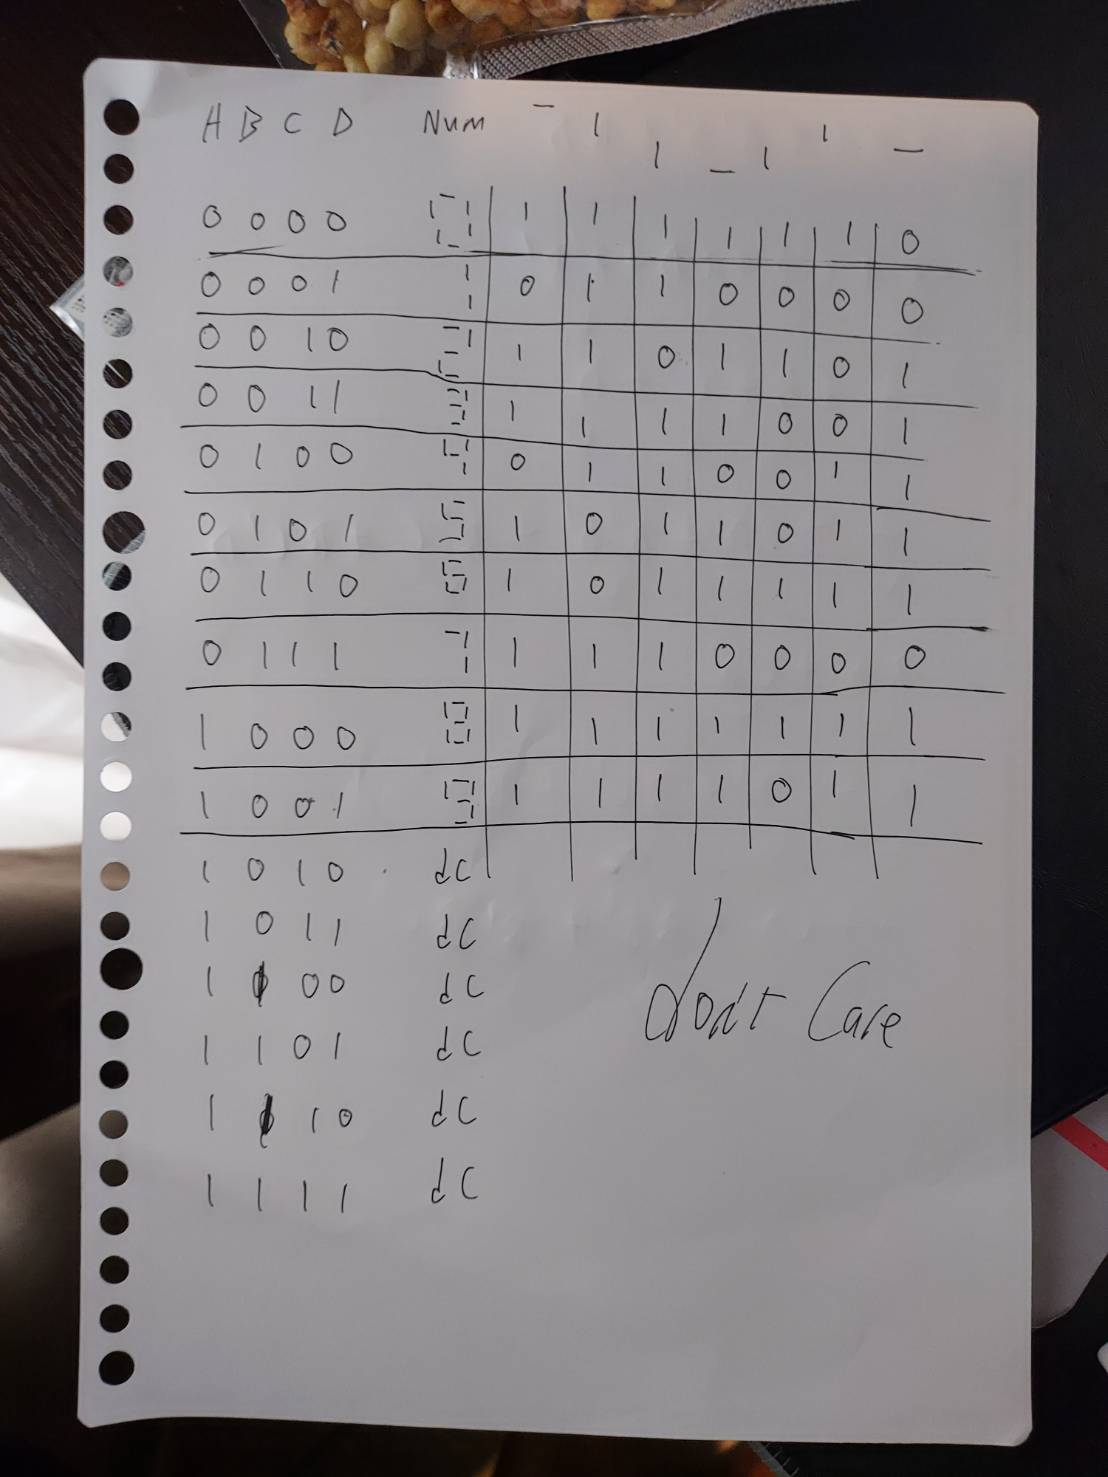 A B C D Num
0 0 0 0 1 1 1 1 1 1 0
0 0 0 1 0 1 1 0 0 0 0
0 0 1 0 1 1 0 1 1 0 1
0 0 1 1 1 1 1 1 0 0 1
0 1 0 0 0 1 1 0 0 1 1
0 1 0 1 1 0 1 1 0 1 1
0 1 1 0 1 0 1 1 1 1 1
0 1 1 1 1 1 1 0 0 0 0
1 0 0 0 1 1 1 1 1 1 1
1 0 0 1 1 1 1 1 0 1 1
1 0 1 0 dC
1 0 1 1 dC
1 1 0 0 dC
1 1 0 1 dC
1 1 1 0 dC
1 1 1 1 dC
don't Care